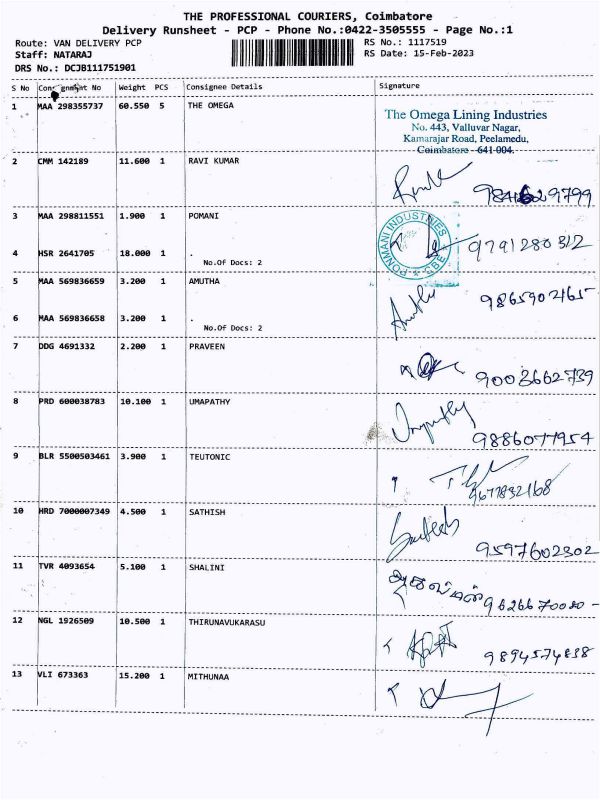 THE PROFESSIONAL COURIERS, Coimbatore
Delivery Runsheet - PCP - Phone No.:0422-3505555 - Page No.:1
Route: VAN DELIVERY PCP RS No.: 1117519
Staff: NATARAJ RS Date: 15-Feb-2023
DRS No.: DCJB111751901
S No Consignment No Weight PCS Consignee Details Signature
1 MAA 298355737 60.550 5 THE OMEGA
The Omega Lining Industries
No. 443, Valluvar Nagar,
Kamarajar Road, Peelamedu,
Coimbatore - 641 004.
2 CMM 142189 11.600 1 RAVI KUMAR
3 MAA 298811551 1.900 1 POMANI
PONMANI INDUSTRIES CBE
4 HSR 2641705 18.000 1 . 9791280312
No.Of Docs: 2
5 MAA 569836659 3.200 1 AMUTHA
9865902165
6 MAA 569836658 3.200 1 .
No.Of Docs: 2
7 DDG 4691332 2.200 1 PRAVEEN
9003662739
8 PRD 600038783 10.100 1 UMAPATHY
Umapathy
9886077954
9 BLR 5500503461 3.900 1 TEUTONIC
9677832168
10 HRD 7000007349 4.500 1 SATHISH
9597602302
11 TVR 4093654 5.100 1 SHALINI
12 NGL 1926509 10.500 1 THIRUNAVUKARASU
13 VLI 673363 15.200 1 MITHUNAA